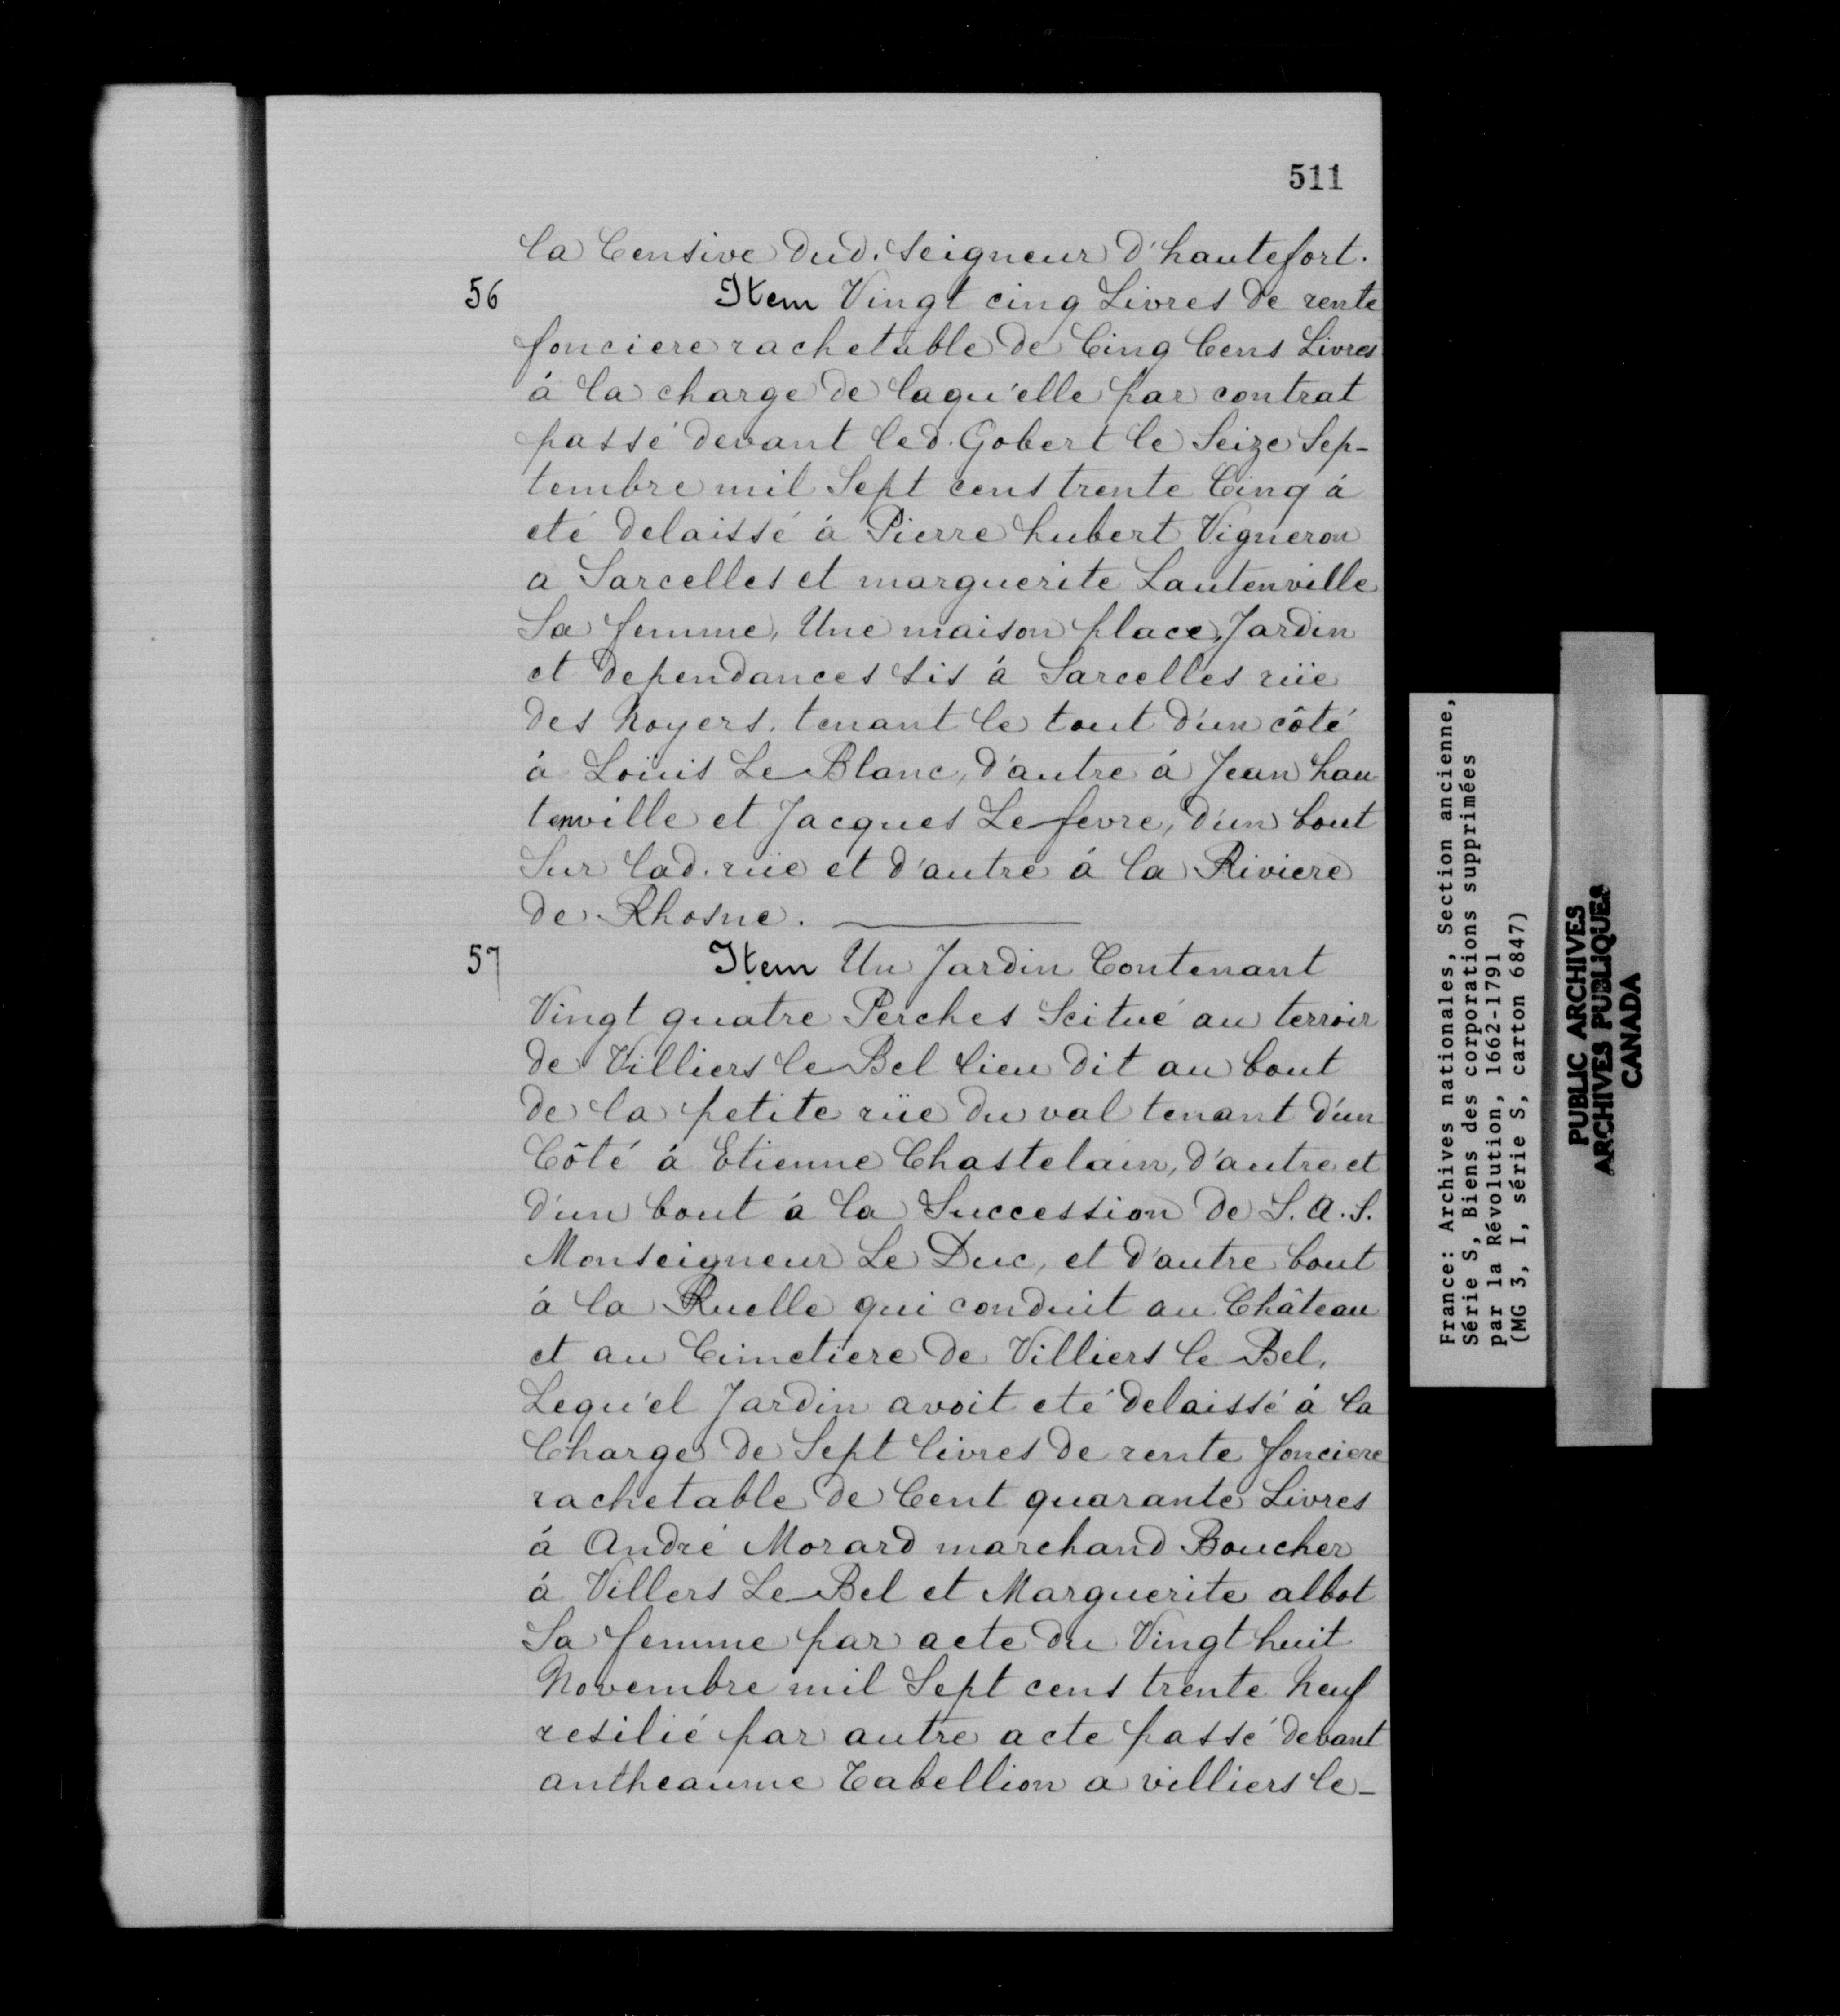 511
la Censive dud. Seigneur d'hautefort.
56 Item Vingt cinq Livres de rente
fonciere rachetable de Cinq Cens Livres
à la charge de laqu'elle par contrat
passé devant led. Gobert le Seize Sep-
tembre mil Sept cens trente Cinq à
eté delaissé à Pierre hubert Vigneron
a Sarcelles et marguerite Lautenville
Sa femme, Une maison place, Jardin
et dependances sis à Sarcelles rüe
des Noyers. tenant le tout d'un côté
à Loüis Le Blanc, d'autre à Jean hau
tenville et Jacques Le fevre, d'un bout
Sur lad. rüe et d'autre à la Riviere
de Rhosne.
57 Item Un Jardin Contenant
Vingt quatre Perches Scitué au terroir
de Villiers le Bel lieu dit au bout
de la petite rüe du val tenant d'un
Côté à Etienne Chastelain, d'autre et
d'un bout à la Succession de S. A. S.
Monseigneur Le Duc, et d'autre bout
à la Ruelle qui conduit au Château
et au Cimetiere de Villiers le Bel,
Lequ'el Jardin avoit eté delaissé à la
Charge de Sept livres de rente fonciere
rachetable de Cent quarante Livres
à André Morard marchand Boucher
à Villers Le Bel et Marguerite albot
Sa femme par acte du Vingt huit
Novembre mil Sept cens trente Neuf
resilié par autre acte passé devant
antheaume Tabellion a villiers le-
France: Archives nationales, Section ancienne,
Série S, Biens des corporations supprimées
par la Révolution, 1662-1791
(MG 3, I, série S, carton 6847)
PUBLIC ARCHIVES
ARCHIVES PUBLIQUES
CANADA